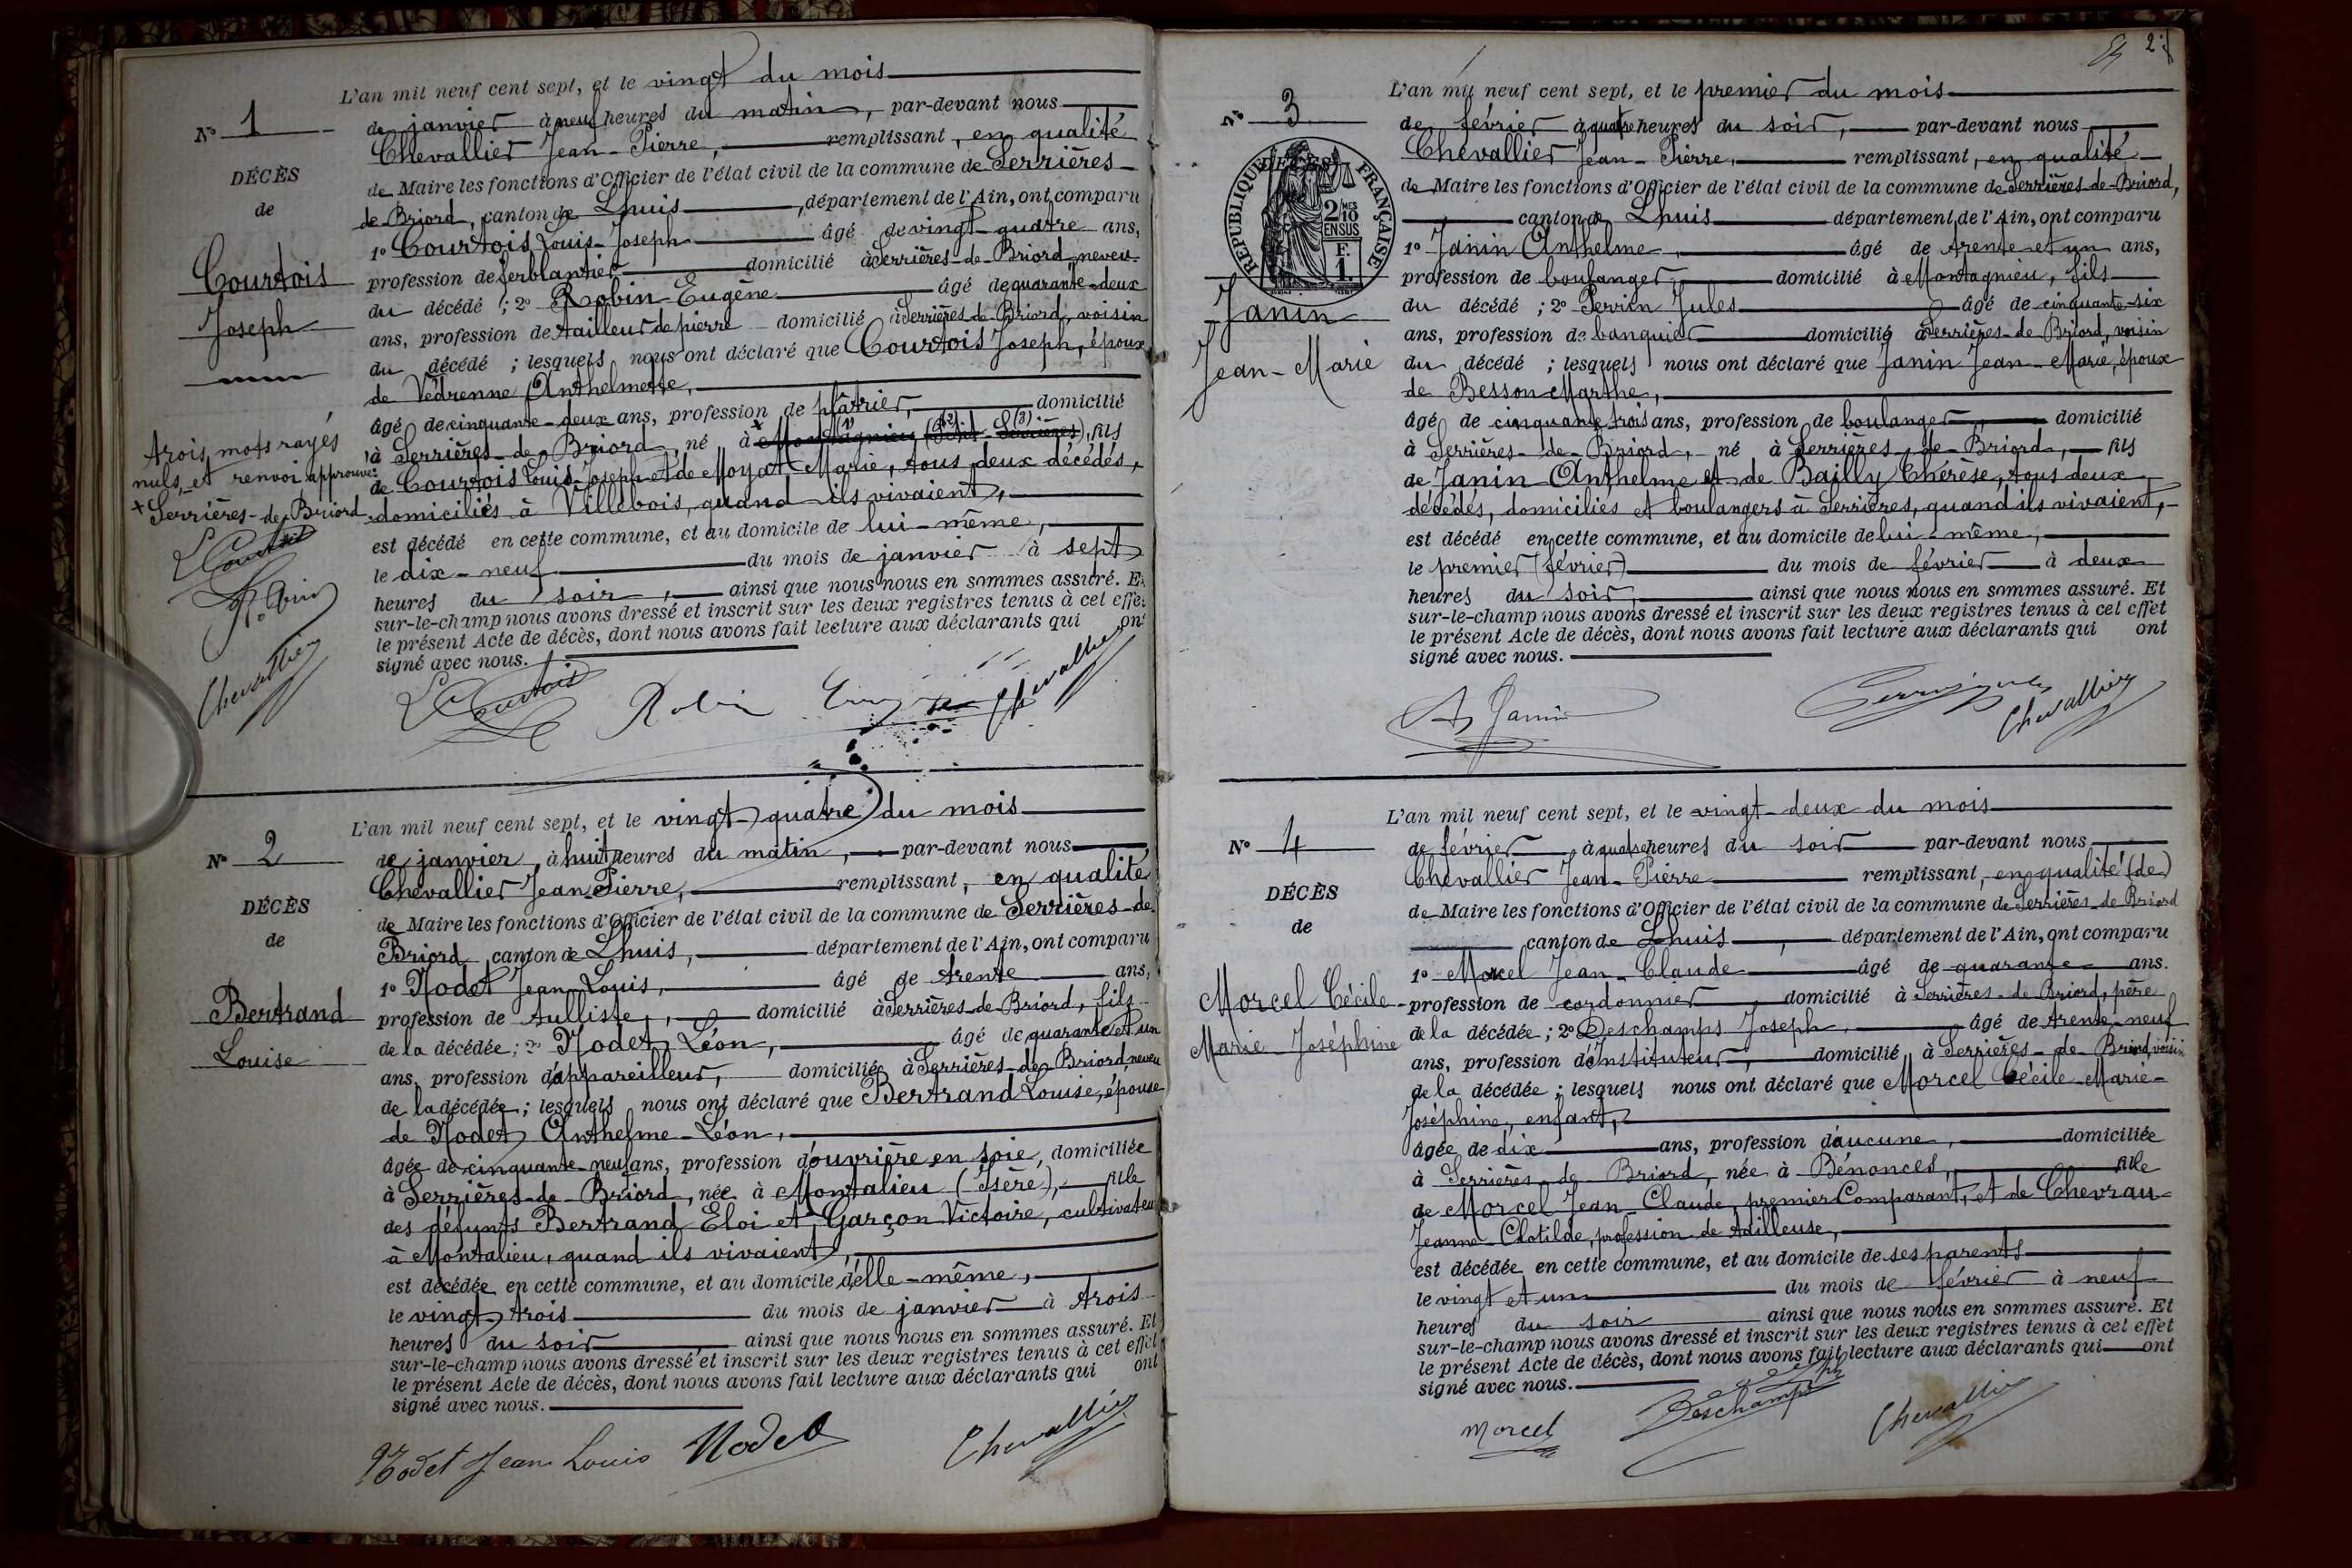 L'an mil neuf cent sept, et le vingt du mois
N° 1
de janvier à neuf heures du matin, par-devant nous
Chevallier Jean-Pierre, remplissant, en qualité
DÉCÈS
de Maire les fonctions d'Officier de l'état civil de la commune de Serrières-
de
de Briord, canton de Lhuis, département de l'Ain, ont comparu
1° Courtois Louis-Joseph âgé de vingt-quatre ans,
Courtois
profession de ferblantier, domicilié à Serrières-de-Briord, neveu
Joseph
du décédé ; 2° Robin Eugène âgé de quarante-deux
ans, profession de tailleur de pierre domicilié à Serrières-de-Briord, voisin
du décédé ; lesquels nous ont déclaré que Courtois Joseph, époux
de Védrenne Anthelmette,
âgé de cinquante-deux ans, profession de plâtrier, domicilié
à Serrières-de-Briord, né à × Montagnieu (Petit-Serrières), fils
(1) (2) (3)
de Courtois Louis-Joseph et de Moyat Marie, tous deux décédés,
domiciliés à Villebois, quand ils vivaient,
est décédé en cette commune, et au domicile de lui-même,
le dix-neuf du mois de janvier à sept
heures du soir, ainsi que nous nous en sommes assuré. Et
sur-le-champ nous avons dressé et inscrit sur les deux registres tenus à cet effet
le présent Acte de décès, dont nous avons fait lecture aux déclarants qui ont
signé avec nous.
trois mots rayés
nuls, et renvoi approuvé:
+ Serrières-de-Briord
L Courtois
Robin
Chevallier
L Courtois Robin Eugène Chevallier
L'an mil neuf cent sept, et le vingt-quatre du mois
N° 2
de janvier, à huit heures du matin, par-devant nous
Chevallier Jean-Pierre, remplissant, en qualité
DÉCÈS
de Maire les fonctions d'Officier de l'état civil de la commune de Serrières-de-
de
Briord canton de Lhuis, département de l'Ain, ont comparu
1° Nodet Jean-Louis, âgé de trente ans,
Bertrand
profession de tulliste, domicilié à Serrières-de-Briord, fils
Louise
de la décédée ; 2° Nodet Léon, âgé de quarante et un
ans, profession d'appareilleur, domicilié à Serrières-de-Briord, neveu
de la décédée ; lesquels nous ont déclaré que Bertrand Louise, épouse
de Nodet Anthelme-Léon,
âgée de cinquante-neuf ans, profession d'ouvrière en soie, domiciliée
à Serrières-de-Briord, née à Montalieu (Isère), fille
des défunts Bertrand Eloi et Garçon Victoire, cultivateurs
à Montalieu, quand ils vivaient,
est décédée en cette commune, et au domicile d'elle-même,
le vingt-trois du mois de janvier à trois
heures du soir ainsi que nous nous en sommes assuré. Et
sur-le-champ nous avons dressé et inscrit sur les deux registres tenus à cet effet
le présent Acte de décès, dont nous avons fait lecture aux déclarants qui ont
signé avec nous.
Nodet Jean Louis Nodet Chevallier
2
L'an mil neuf cent sept, et le premier du mois
N° 3
de février à quatre heures du soir, par-devant nous
Chevallier Jean-Pierre, remplissant, en qualité
DÉCÈS
RÉPUBLIQUE FRANÇAISE
2/10 MES
EN SUS
F.
1.
de Maire les fonctions d'Officier de l'état civil de la commune de Serrières-de-Briord,
canton de Lhuis département de l'Ain, ont comparu
1° Janin Anthelme, âgé de trente et un ans,
profession de boulanger domicilié à Montagnieu, fils
Janin
du décédé ; 2° Perrin Jules âgé de cinquante-six
ans, profession de banquier domicilié à Serrières-de-Briord, voisin
Jean-Marie
du décédé ; lesquels nous ont déclaré que Janin Jean-Marie, époux
de Besson Marthe,
âgé de cinquante trois ans, profession de boulanger, domicilié
à Serrières-de-Briord, né à Serrières-de-Briord, fils
de Janin Anthelme et de Bailly Thérèse, tous deux
décédés, domiciliés et boulangers à Serrières, quand ils vivaient,
est décédé en cette commune, et au domicile de lui-même,
le premier (février) du mois de février à deux
heures du soir, ainsi que nous nous en sommes assuré. Et
sur-le-champ nous avons dressé et inscrit sur les deux registres tenus à cet effet
le présent Acte de décès, dont nous avons fait lecture aux déclarants qui ont
signé avec nous.
A Janin Perrin Jules Chevallier
L'an mil neuf cent sept, et le vingt-deux du mois
N° 4
de février à quatre heures du soir par-devant nous
Chevallier Jean-Pierre remplissant, en qualité (de)
DÉCÈS
de Maire les fonctions d'Officier de l'état civil de la commune de Serrières-de-Briord
de
canton de Lhuis, département de l'Ain, ont comparu
1° Morcel Jean-Claude âgé de quarante ans.
Morcel Cécile-
profession de cordonnier, domicilié à Serrières-de-Briord, père
Marie-Joséphine
de la décédée ; 2° Deschamps Joseph, âgé de trente-neuf
ans, profession d'Instituteur, domicilié à Serrières-de-Briord, voisin
de la décédée ; lesquels nous ont déclaré que Morcel Cécile-Marie-
Joséphine, enfant,
âgée de dix ans, profession d'aucune, domiciliée
à Serrières-de-Briord, née à Bénonces, fille
de Morcel Jean-Claude, premier Comparant, et de Chevrau
Jeanne-Clotilde, profession de tailleuse,
est décédée en cette commune, et au domicile de ses parents
le vingt et un du mois de février à neuf
heures du soir ainsi que nous nous en sommes assuré. Et
sur-le-champ nous avons dressé et inscrit sur les deux registres tenus à cet effet
le présent Acte de décès, dont nous avons fait lecture aux déclarants qui ont
signé avec nous.
Morcel Deschamps Chevallier